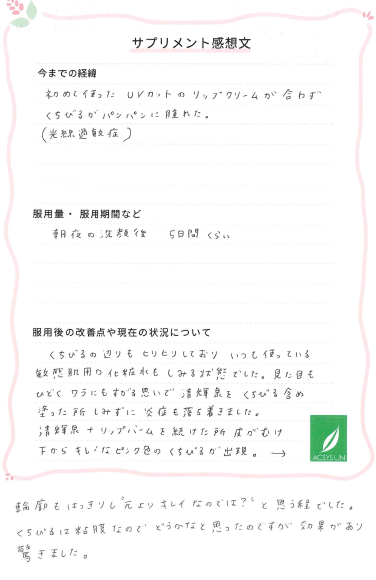 サプリメント感想文
今までの経緯
初めて使った UVカットの リップクリームが 合わず
くちびるが パンパンに 腫れた。
(光線過敏症)
服用量・服用期間など
朝夜の洗顔後 5日間くらい
服用後の改善点や現在の状況について
くちびるの辺りも ヒリヒリしており いつも使っている
敏感肌用の化粧水も しみる状態でした。見た目も
ひどく ワラにもすがる思いで 清輝泉を くちびる含め
塗った所 しみずに 炎症も落ち着きました。
清輝泉 + リップバームを 続けた所 皮がむけ
下から キレイなピンク色の くちびるが 出現。→
ACSYSUN
輪廓も はっきりし "元より キレイ なのでは?" と 思う程でした。
くちびるは 粘膜なので どうかなと 思ったのですが 効果があり
驚きました。